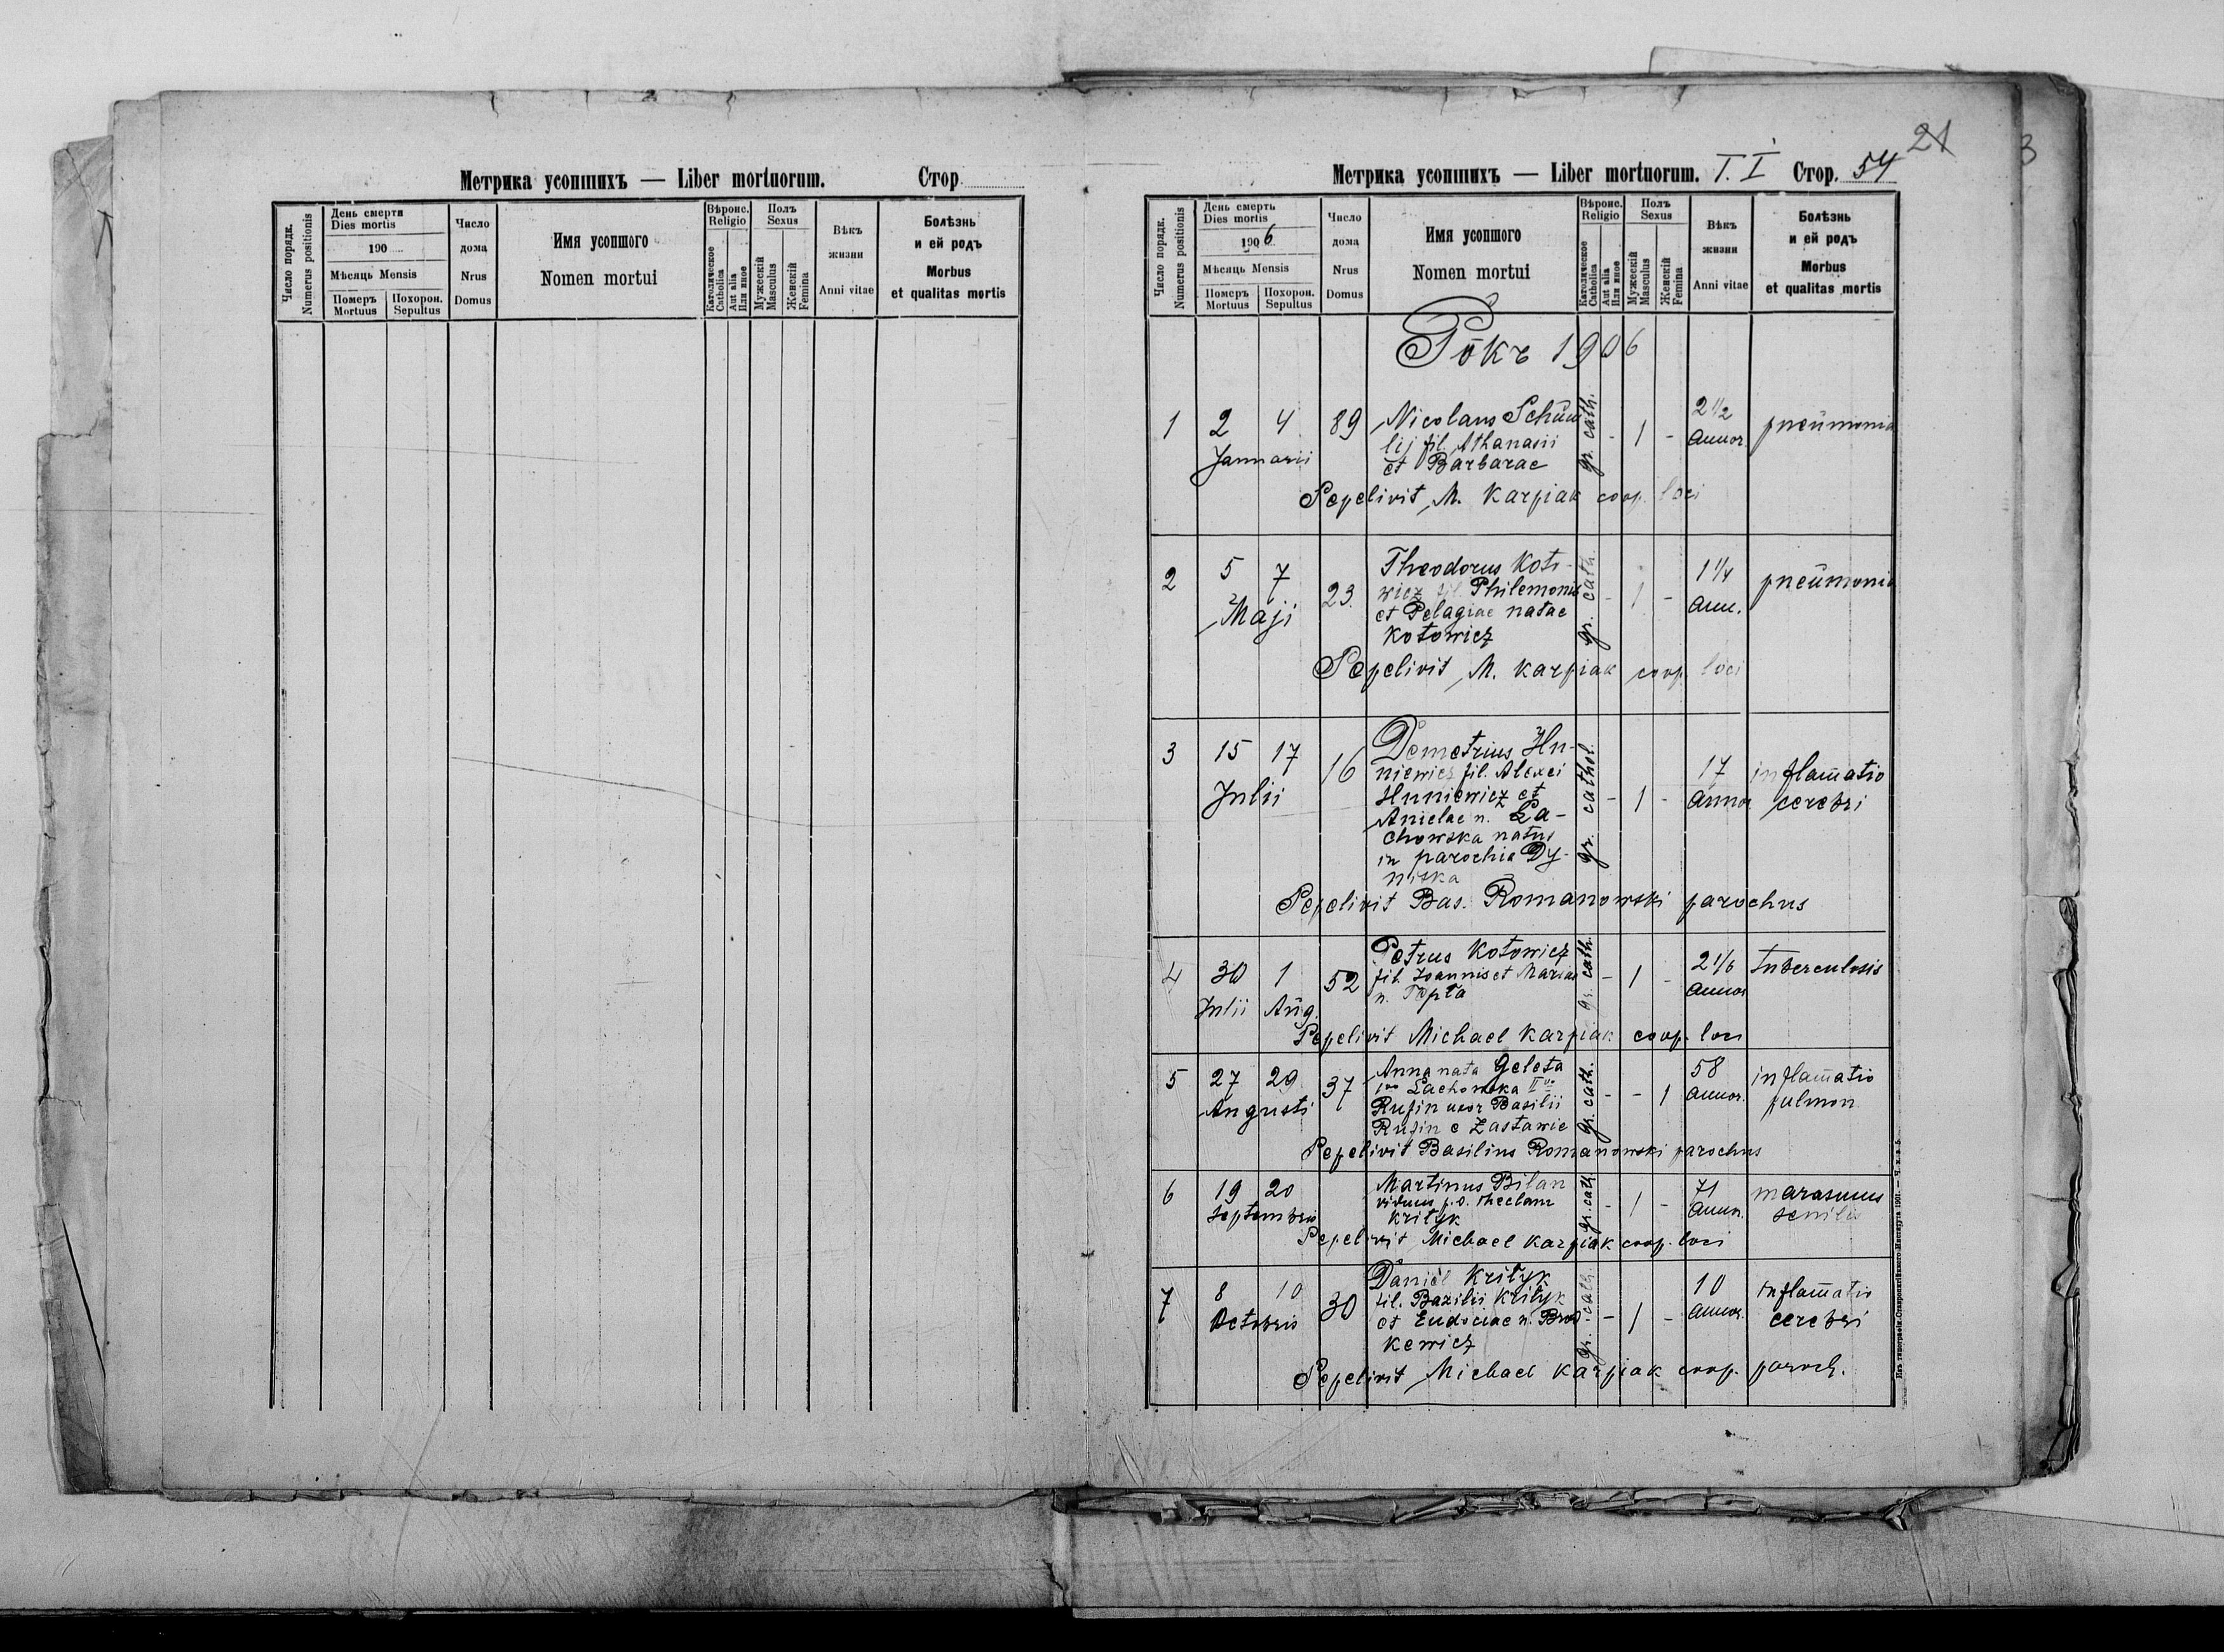 Метрика усопшихъ — Liber mortuorum. Стор.
Число порядк. Numerus positionis
День смерти Dies mortis
190
Мѣсяць Mensis
Померъ Mortuus
Похорон. Sepultus
Число дома Nrus Domus
Имя усопшого
Nomen mortui
Вѣроис. Religio
Католическое Catholica
Aut alia Или иное
Полъ Sexus
Мужескій Masculus
Женскій Femina
Вѣкъ жизни Anni vitae
Болѣзнь и ей родъ
Morbus et qualitas mortis
21
3
Метрика усопшихъ — Liber mortuorum. T. I Стор. 54
Число порядк. Numerus positionis
День смерть Dies mortis
1906
Мѣсяць Mensis
Померъ Mortuus
Похорон. Sepultus
Число дома Nrus Domus
Имя усопшого
Nomen mortui
Вѣроис. Religio
Католическое Catholica
Aut alia Или иное
Полъ Sexus
Мужескій Masculus
Женскій Femina
Вѣкъ жизни Anni vitae
Болѣзнь и ей родъ
Morbus et qualitas mortis
Рôкъ 1906
1 2 4 89 Nicolaus gr. cath. - 1 - 2 1/2 pneumonia
Januarii lij fil. Athanasii annor.
et Barbarae
Sepelivit M. Karpiak coop. loci
2 5 7 23 Theodorus Koto- gr. cath. - 1 - 1 1/4 pneumonia
Maji wicz fil. Philemonis ann.
et Pelagiae natae
Kotowicz
Sepelivit M. Karpiak coop loci
3 15 17 16 Demetrius Hu- gr. cathol. - 1 - 17 inflam̄atio
Julii niewicz fil. Alexei annor cerebri
Huniewicz et
Anielae n. La-
chowska natus
in parochia Dy-
niska
Sepelivit Bas. Romanowski parochus
4 30 1 52 Petrus Kotowicz gr. cath. - 1 - 2 1/6 tuberculosis
Julii Aug. fil. Joannis et Mariae annor
n. Topta
Sepelivit Michael Karpiak coop. loci
5 27 29 37 Anna nata Geleta gr. cath. - - 1 58 inflam̄atio
Augusti 1vo Lachowska IIvo annor. pulmon
Rufin uxor Basilii
Rufin e Zastawie
Sepelivit Basilius Romanowski parochus
6 19 20 Martinus Bilan gr. cath. - 1 - 71 marasmus
Septembris viduus p. o. Theclam annor. senilis
Krityk
Sepelivit Michael Karpiak coop. loci
7 8 10 30 Daniel Krityk gr. cath. - 1 - 10 inflam̄atio
Octobris fil. Bazilii Krityk annor. cerebri
et Eudociae n.
kewicz
Sepelivit Michael Karpiak coop. paroch.